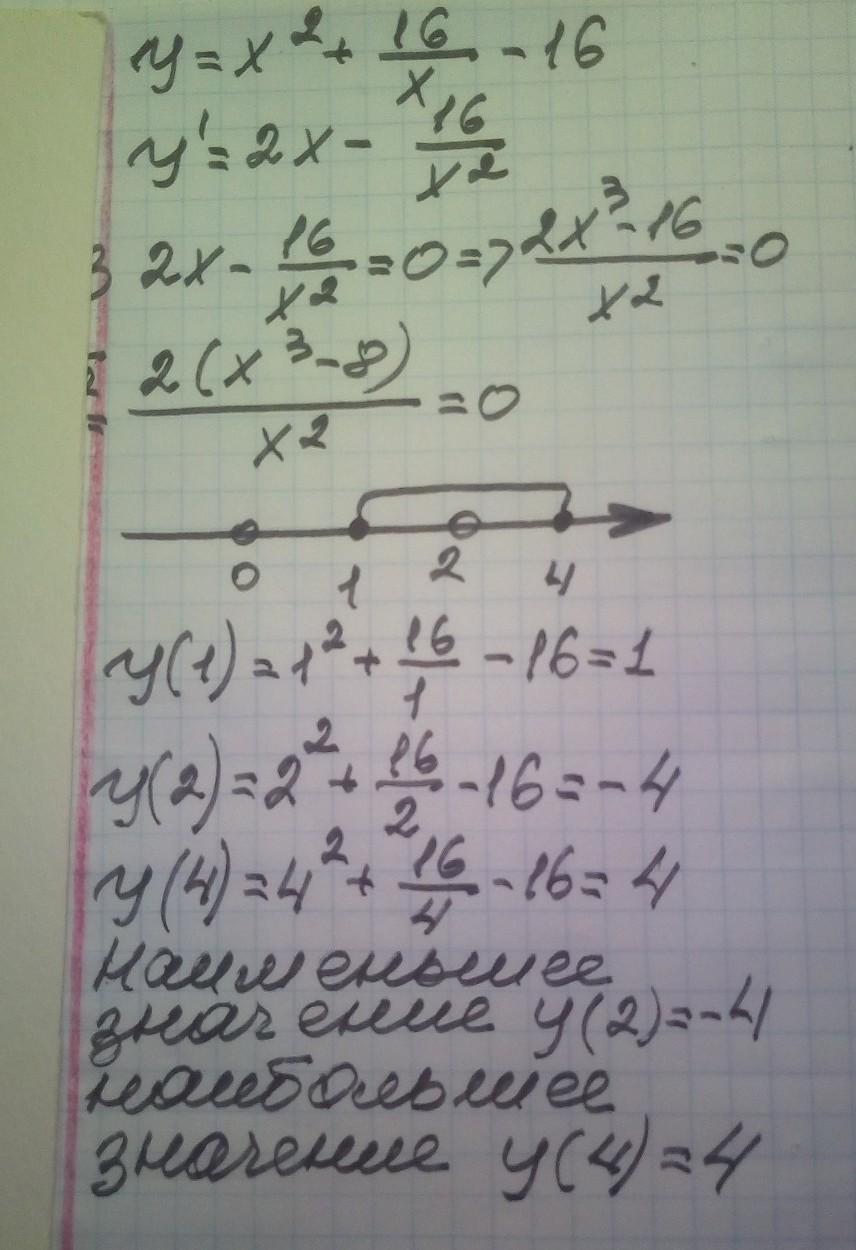 y = x² + 16/x - 16
y' = 2x - 16/x²
2x - 16/x² = 0 => (2x³ - 16)/x² = 0
2(x³ - 8)/x² = 0
0 1 2 4
y(1) = 1² + 16/1 - 16 = 1
y(2) = 2² + 16/2 - 16 = - 4
y(4) = 4² + 16/4 - 16 = 4
наименьшее
значение y(2) = - 4
наибольшее
значение y(4) = 4